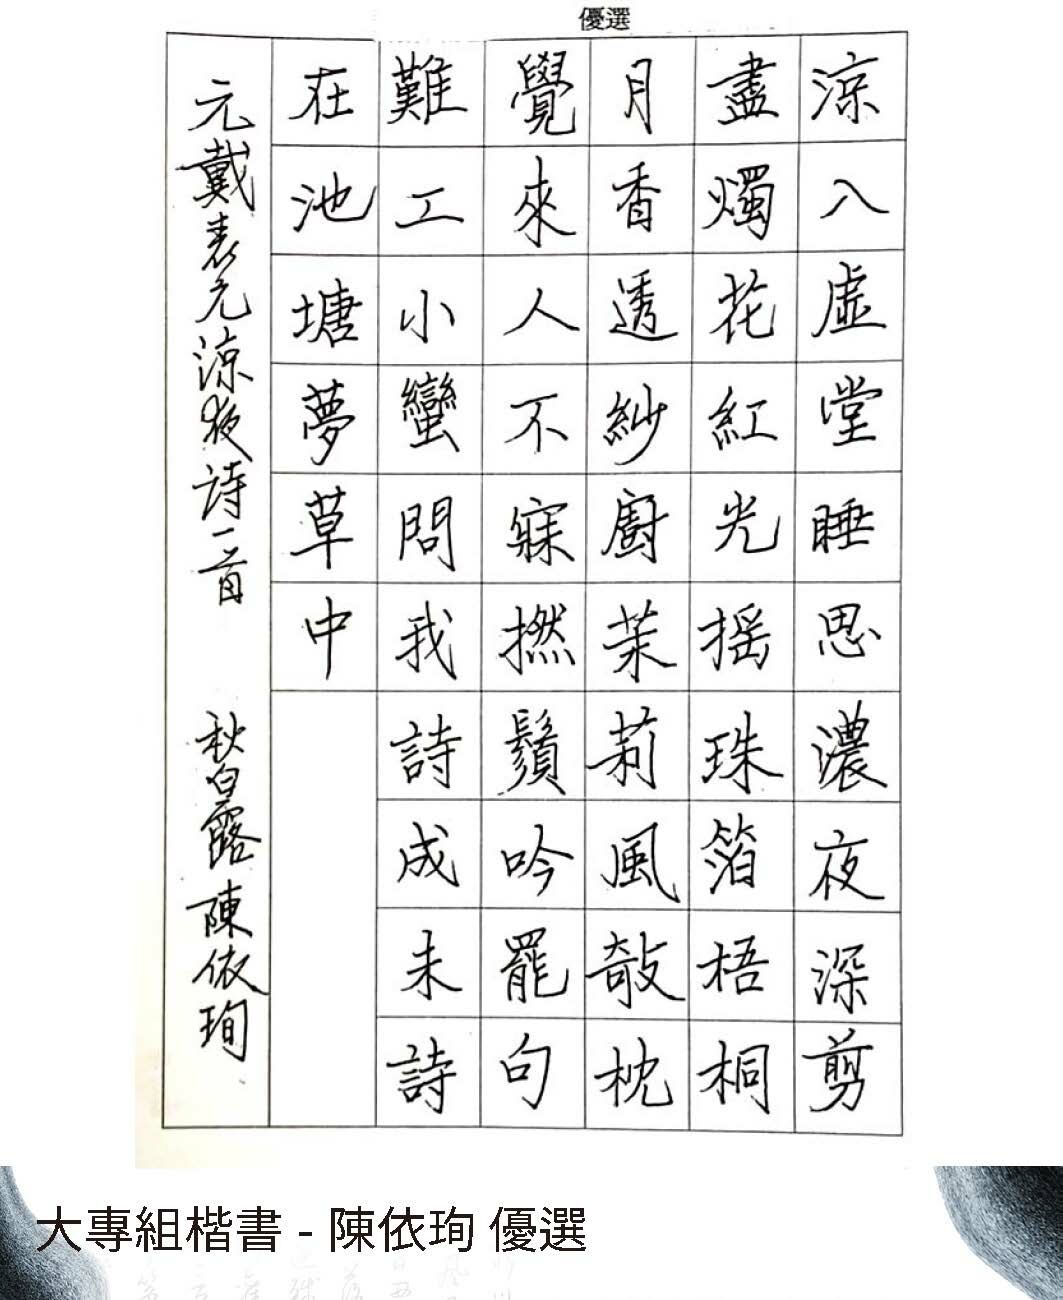 優選
涼入虛堂睡思濃夜深剪
盡燭花紅光搖珠箔梧桐
月香透紗廚茉莉風敧枕
覺來人不寐撚鬚吟罷句
難工小蠻問我詩成未詩
在池塘夢草中
元戴表元涼夜詩一首 秋白露 陳依珣
大專組楷書 - 陳依珣 優選